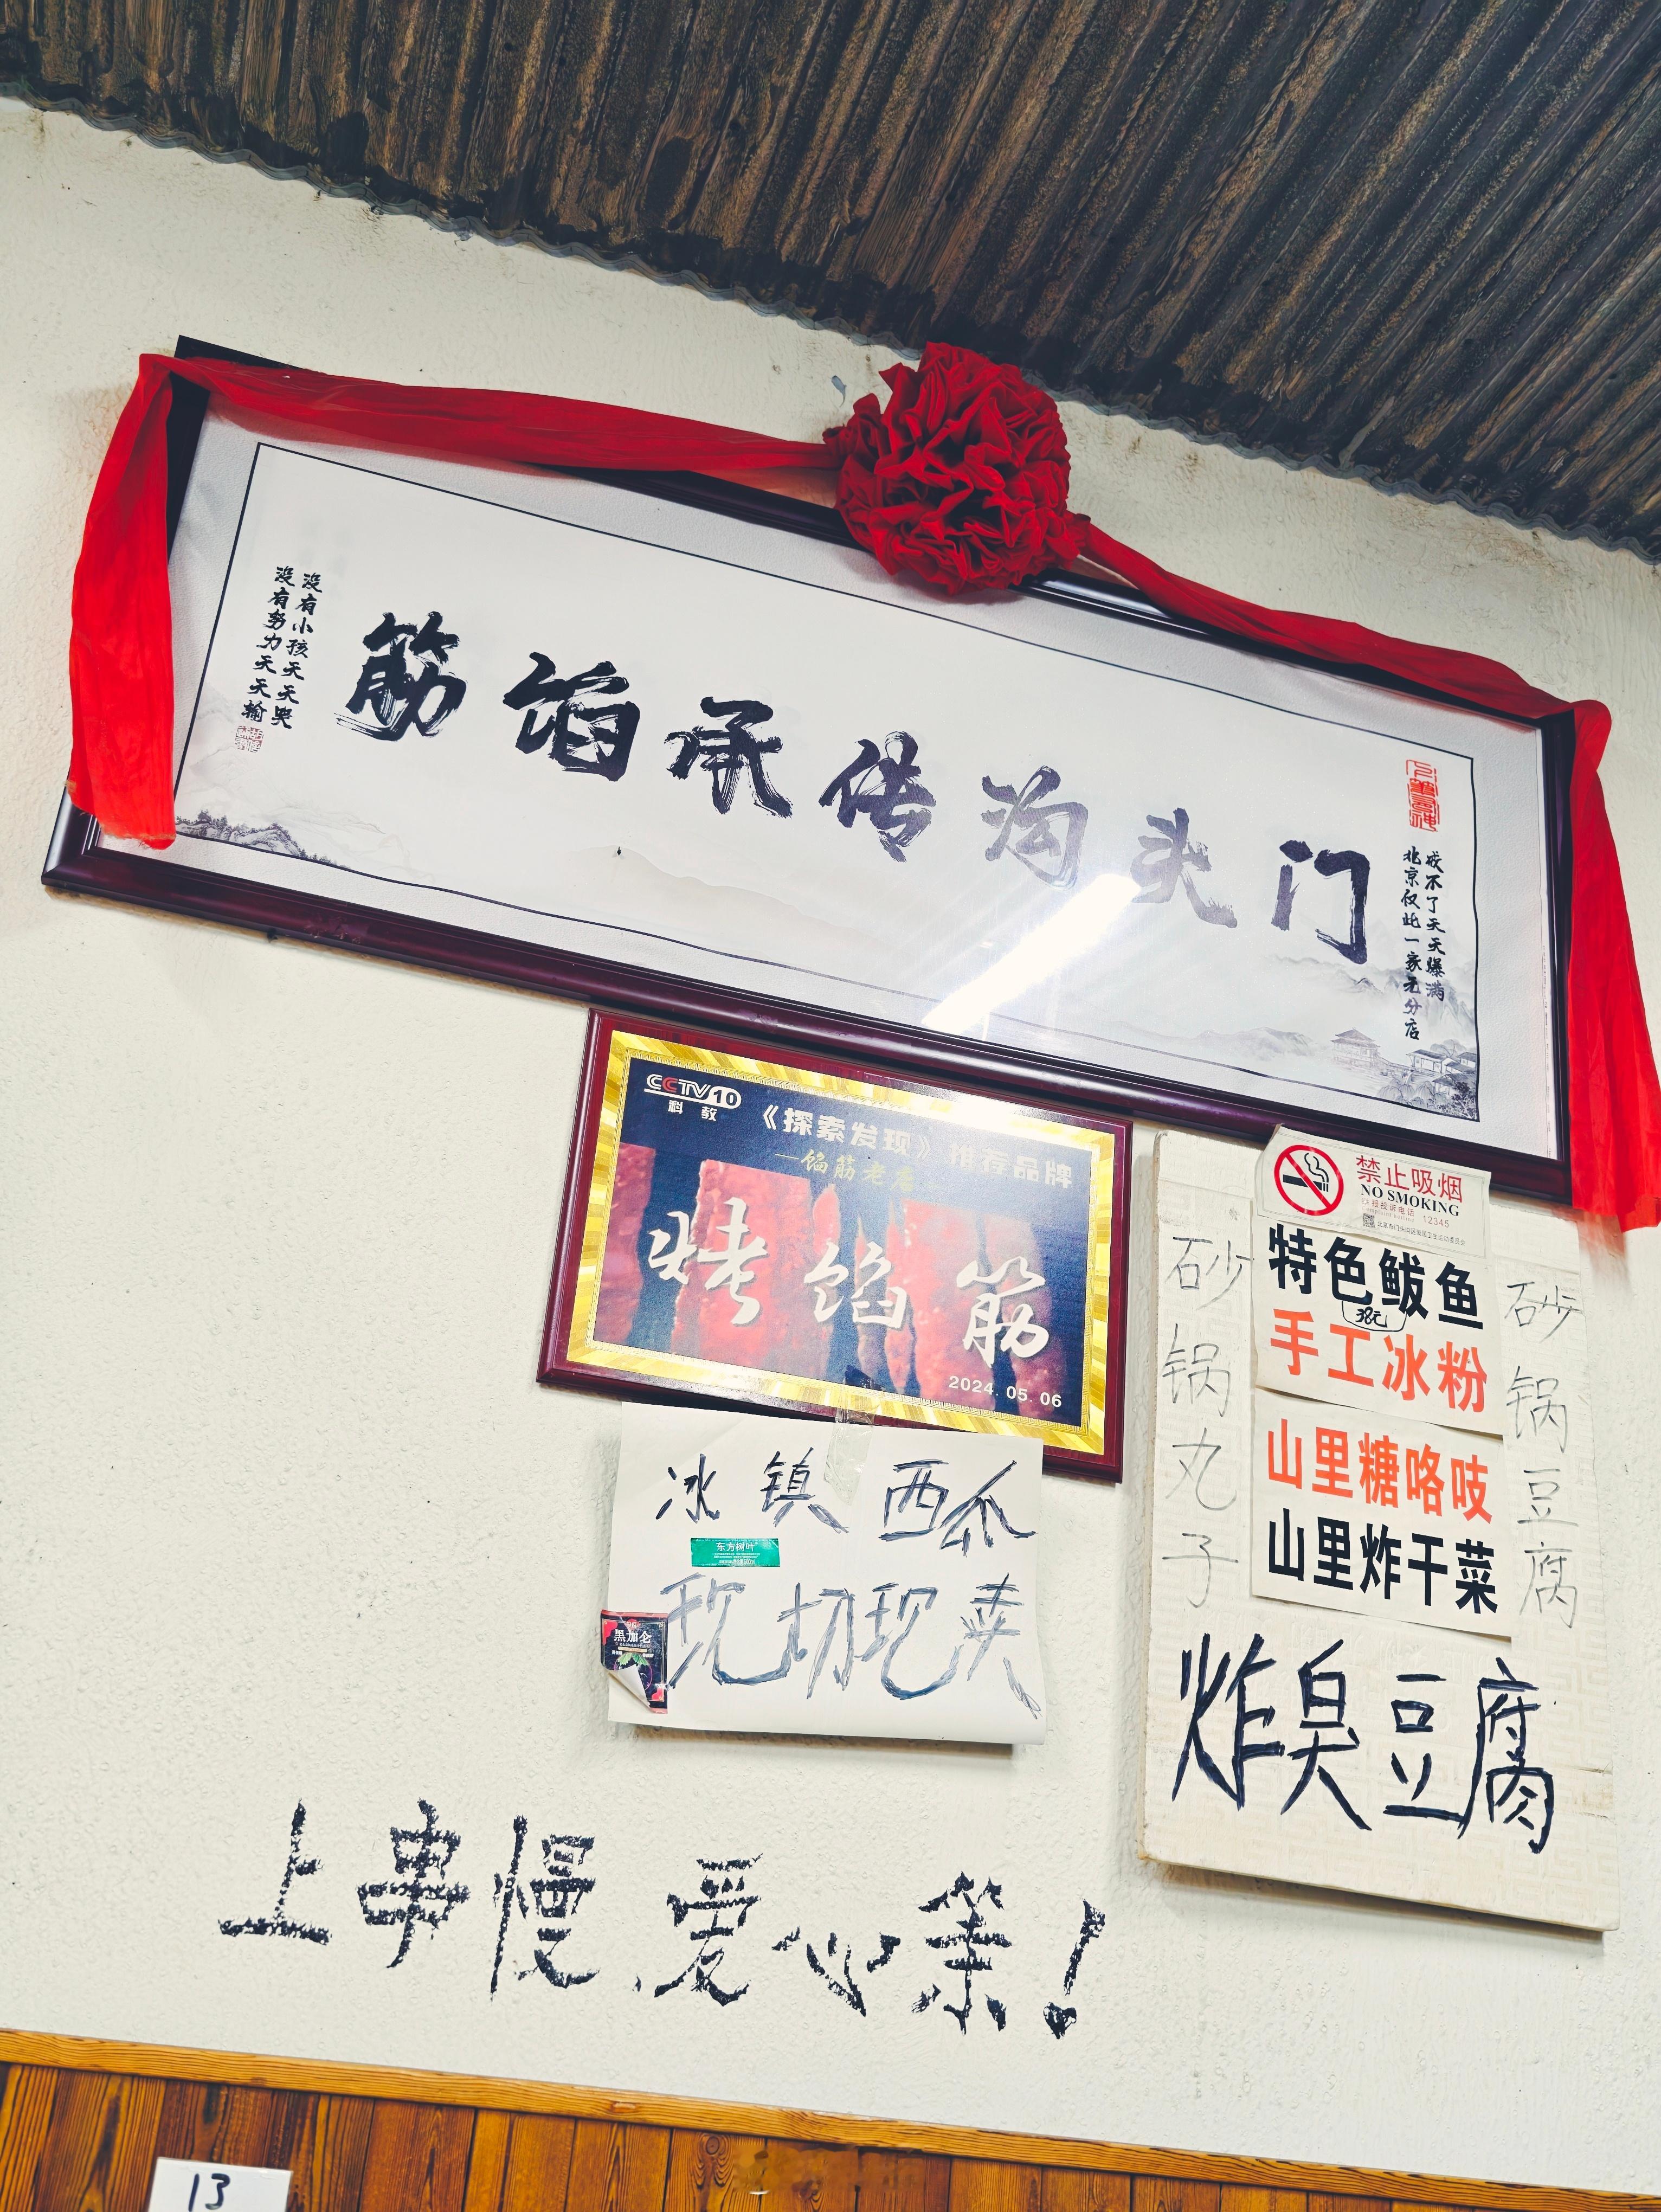 筋馅承传沟头门
成不了天天爆满
北京仅此一家无分店
没有小孩天天哭
没有努力天天输
CCTV 10
科教
《探索发现》推荐品牌
—馅筋老店
烤馅筋
2024.05.06
冰镇西瓜
东方树叶
现切现卖
黑加仑
禁止吸烟
NO SMOKING
12345
特色鲅鱼
38元
手工冰粉
山里糖咯吱
山里炸干菜
砂锅丸子
砂锅豆腐
炸臭豆腐
上串慢、爱心等!
13